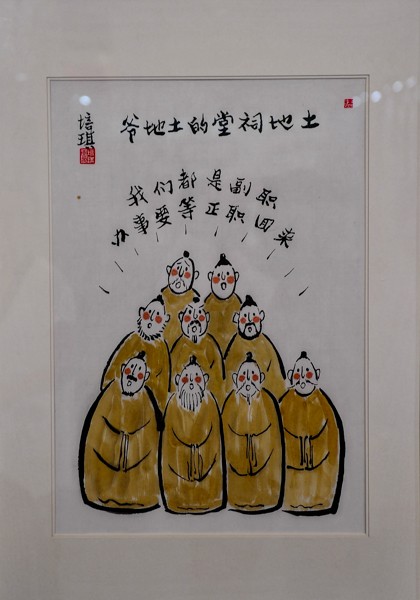 土地祠堂的土地爷
培琪
我们都是副职
办事要等正职回来